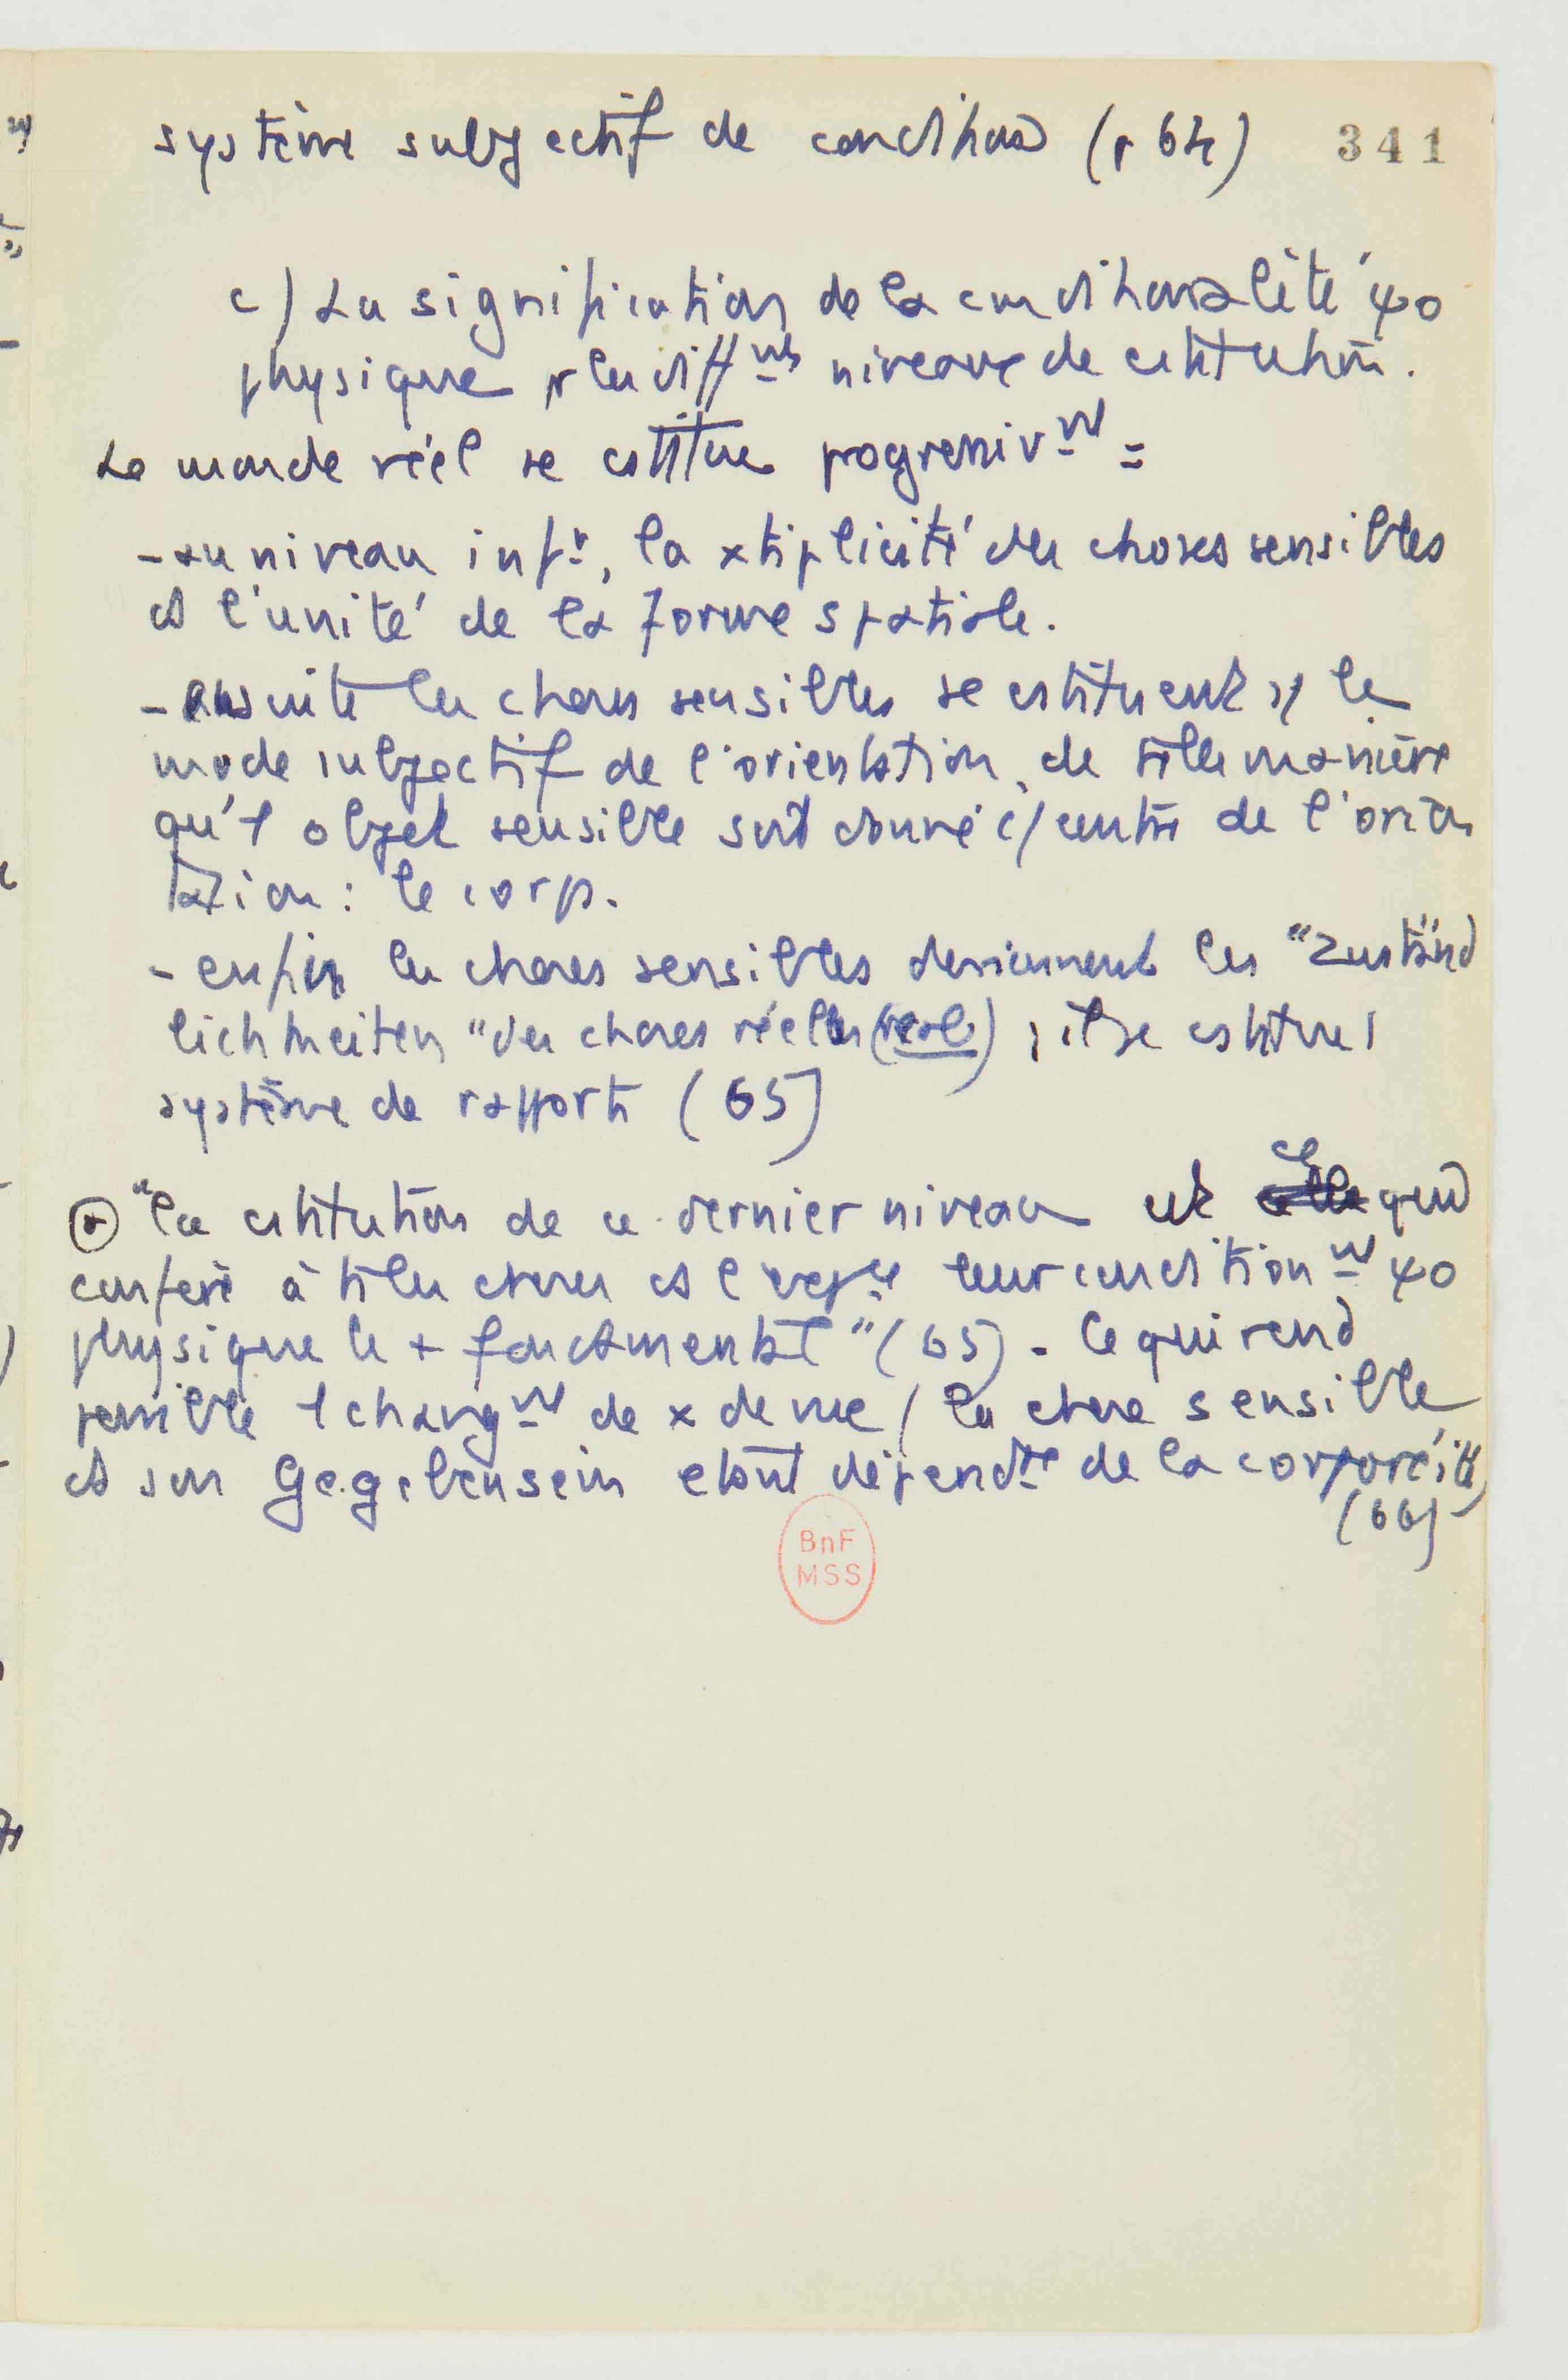 système subjectif de conditions (p 64) 341
c) La signification de la conditionalité ψo
physique pr les diff nts niveaux de cstitution.
Le monde réel se cstitue progressiv nt =
- au niveau inf r, la xtiplicité des choses sensibles
et l'unité de la forme spatiale.
- ensuite les choses sensibles se cstituent le
mode subjectif de l'orientation, de telle manière
qu'1 objet sensible soit donné c/ centre de l'orien
tation : le corps.
- enfin les choses sensibles deviennent les "Zuständ
lichkeiten" des choses réelles (real) ; il se cstitue 1
système de rapports (65)
"La cstitution de ce dernier niveau est ce qui
confère à ttes les choses et l'exp ce leur condition nt ψo
physique le + fondamental" (65) - Ce qui rend
possible 1 chang nt de x de vue / la chose sensible
et son Gegebensein étant dépend te de la corporéité
(66)
BnF
MSS